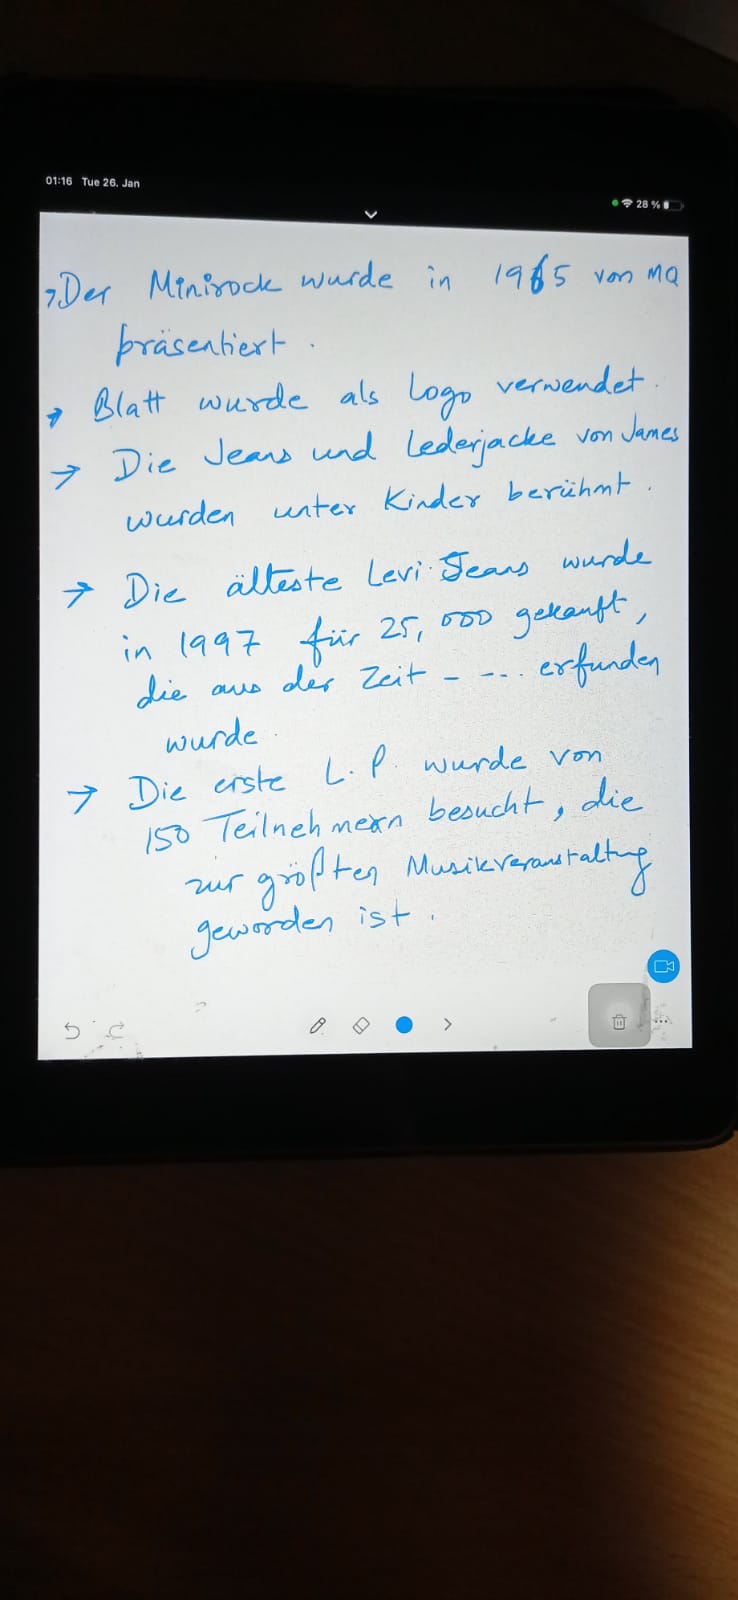 01:16 Tue 26. Jan
28 %
→Der Minirock wurde in 1965 von MQ
präsentiert.
→ Blatt wurde als Logo verwendet.
→ Die Jeans und Lederjacke von James
wurden unter Kinder berühmt.
→ Die älteste Levi Jeans wurde
in 1997 für 25,000 gekauft,
die aus der Zeit - -... erfunden
wurde.
→ Die erste L.P. wurde von
150 Teilnehmern besucht, die
zur größten Musikveranstaltung
geworden ist.